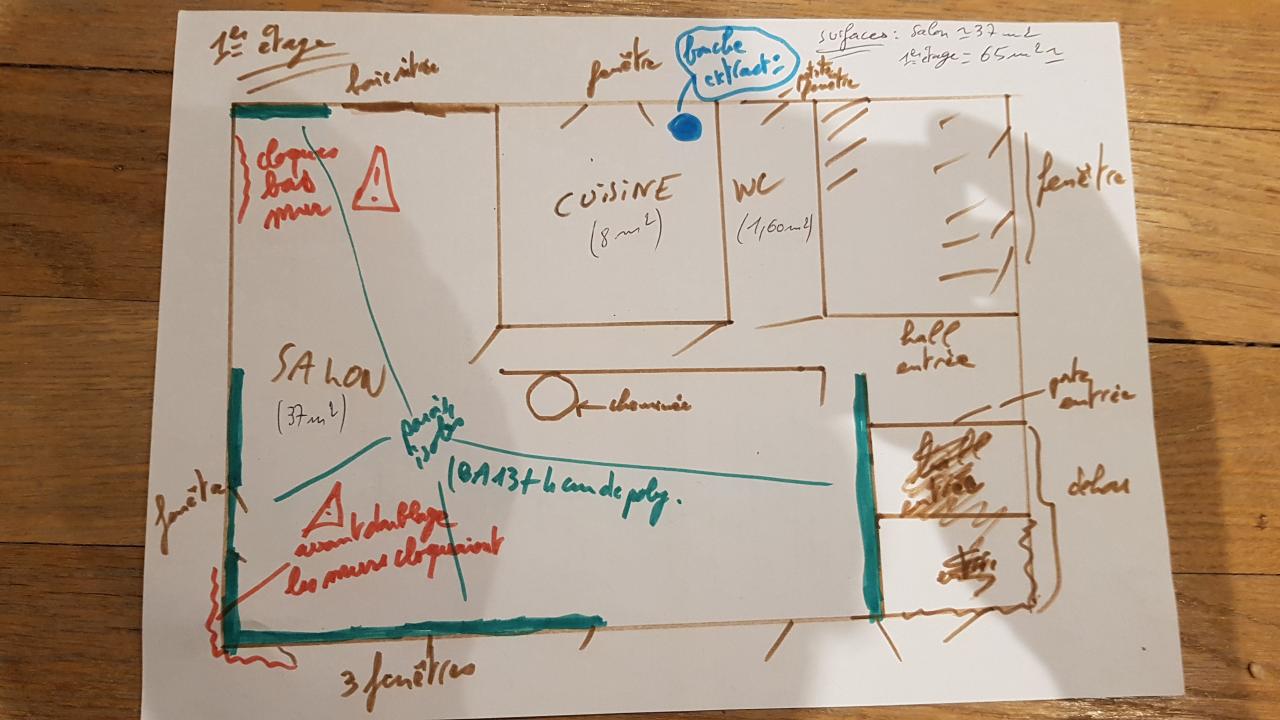 1er étage
baie vitrée
fenêtre
bouche
extract°
petite
fenêtre
surfaces: salon ≃ 37 m2
1er étage = 65 m2 ≃
cloques
bas
mur
CUISINE
(8 m2)
WC
(1,60 m2)
fenêtre
hall
entrée
porte
entrée
SALON
(37 m2)
cheminée
parois
isolées
(BA13 + 4 cm de poly.
dehors
fenêtre
avant doublage
les murs cloquaient
3 fenêtres